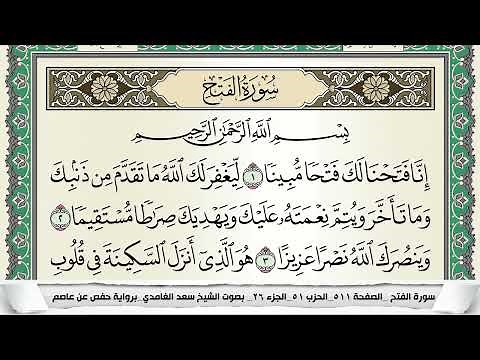 سُورَةُ الفَتْحِ
بِسْمِ اللَّهِ الرَّحْمَٰنِ الرَّحِيمِ
إِنَّا فَتَحْنَا لَكَ فَتْحًا مُّبِينًا ١ لِّيَغْفِرَ لَكَ اللَّهُ مَا تَقَدَّمَ مِن ذَنۢبِكَ
وَمَا تَأَخَّرَ وَيُتِمَّ نِعْمَتَهُۥ عَلَيْكَ وَيَهْدِيَكَ صِرَٰطًا مُّسْتَقِيمًا ٢
وَيَنصُرَكَ اللَّهُ نَصْرًا عَزِيزًا ٣ هُوَ الَّذِىٓ أَنزَلَ السَّكِينَةَ فِى قُلُوبِ
سورة الفتح _الصفحة ٥١١_ الحزب ٥١_ الجزء ٢٦_ بصوت الشيخ سعد الغامدي_ برواية حفص عن عاصم